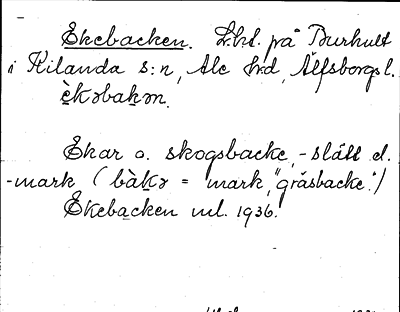 Ekebacken. Lht. på Burhult
i Kilanda s:n, Ale hd, Älfsborgs l.
èkəbakən.
Ekar o. skogsbacke, -slätt el.
-mark (bàkə = mark, "gräsbacke".)
Ekebacken ul. 1936.